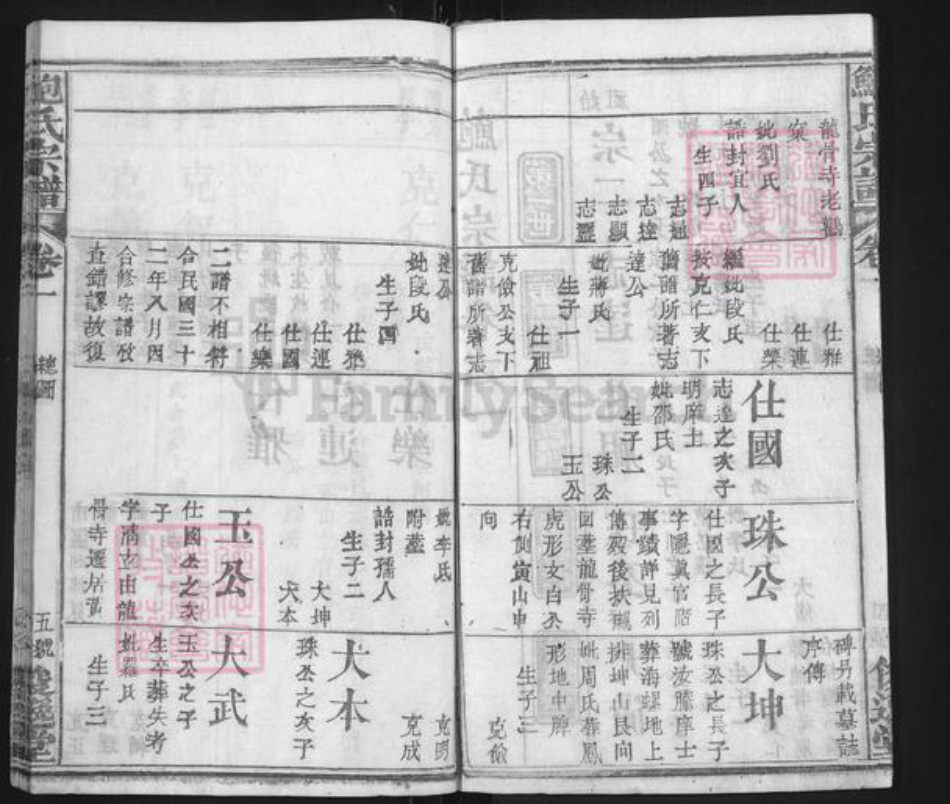 鮑氏宗譜
卷一
龍骨寺老鸛
窠
妣劉氏
誥封宜人
生四子
志
志達
志顯
志靈
仕雅
仕連
仕榮
妣段氏
按克仁支下
舊譜所著志
達公
妣蔣氏
生子一
仕祖
克儉公支下
舊譜所著志
仕國
志達之次子
明庠士
妣邵氏
生子二
珠公
玉公
珠公
仕國之長子
字隱真官階
事蹟詳見列
傳歿後扶櫬
回葬龍骨寺
虎形女自公
右側寅山申
向
碑另載墓誌
序傳
大坤
珠公之長子
號汝勝庠士
葬海螺地上
排坤山艮向
妣周氏葬鳳
形地中牌
生子三
克儉
達公
妣段氏
生子四
仕雅
仕連
仕國
仕樂
二譜不相符
合民國三十
二年八月因
合修宗譜攷
查錯謬故復
妣李氏
附葬
誥封孺人
生子二
大坤
大本
玉公
仕國公之次
子
字清立由龍
骨寺遷居黃
克明
克成
大本
珠公之次子
大武
玉公之子
生卒葬失考
妣羅氏
生子三
鮑氏宗譜
卷一
總圖
五號
俊逸堂
FamilySearch